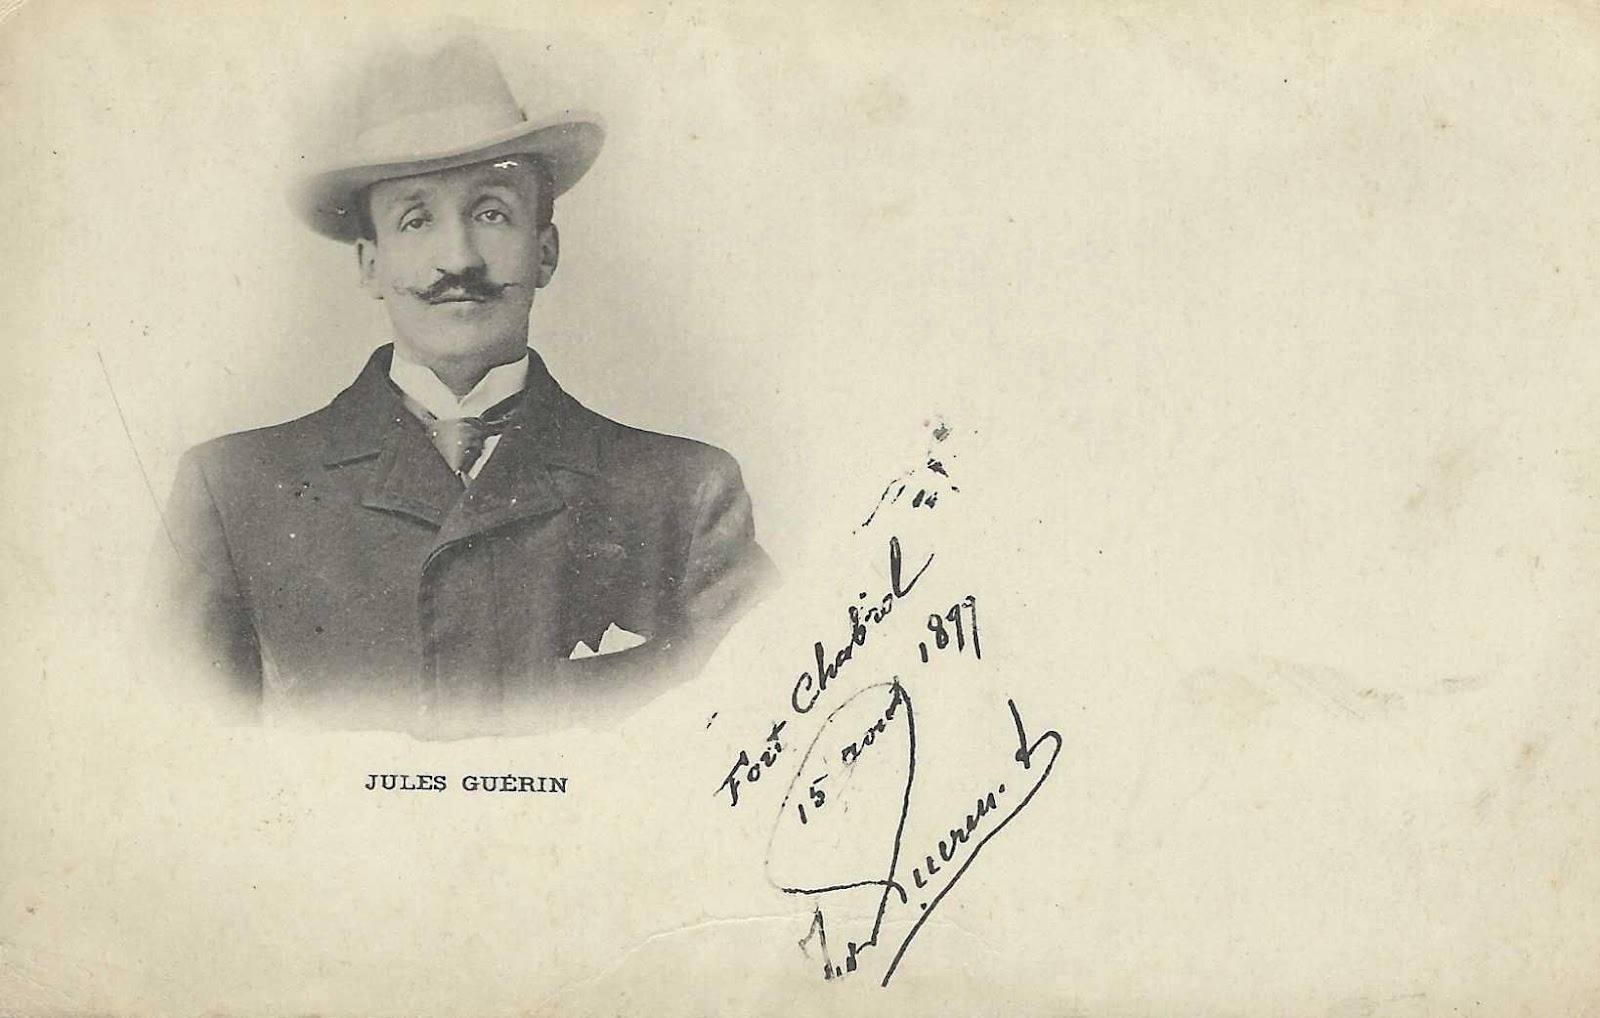 JULES GUÉRIN
Fort Chabrol
15 août 1899
Guérin